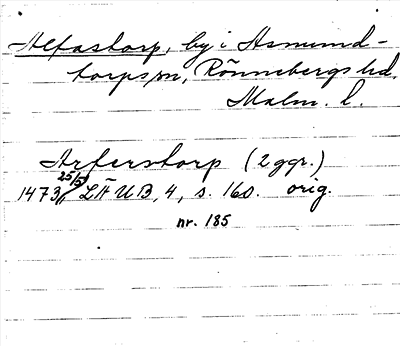 Alfastorp, by i Asmund-
torps sn, Rönnebergs hd.
Malm. l.
Arferstorp (2 ggr.)
1473 25/5 LÄUB, 4, s. 160. orig.
nr. 185